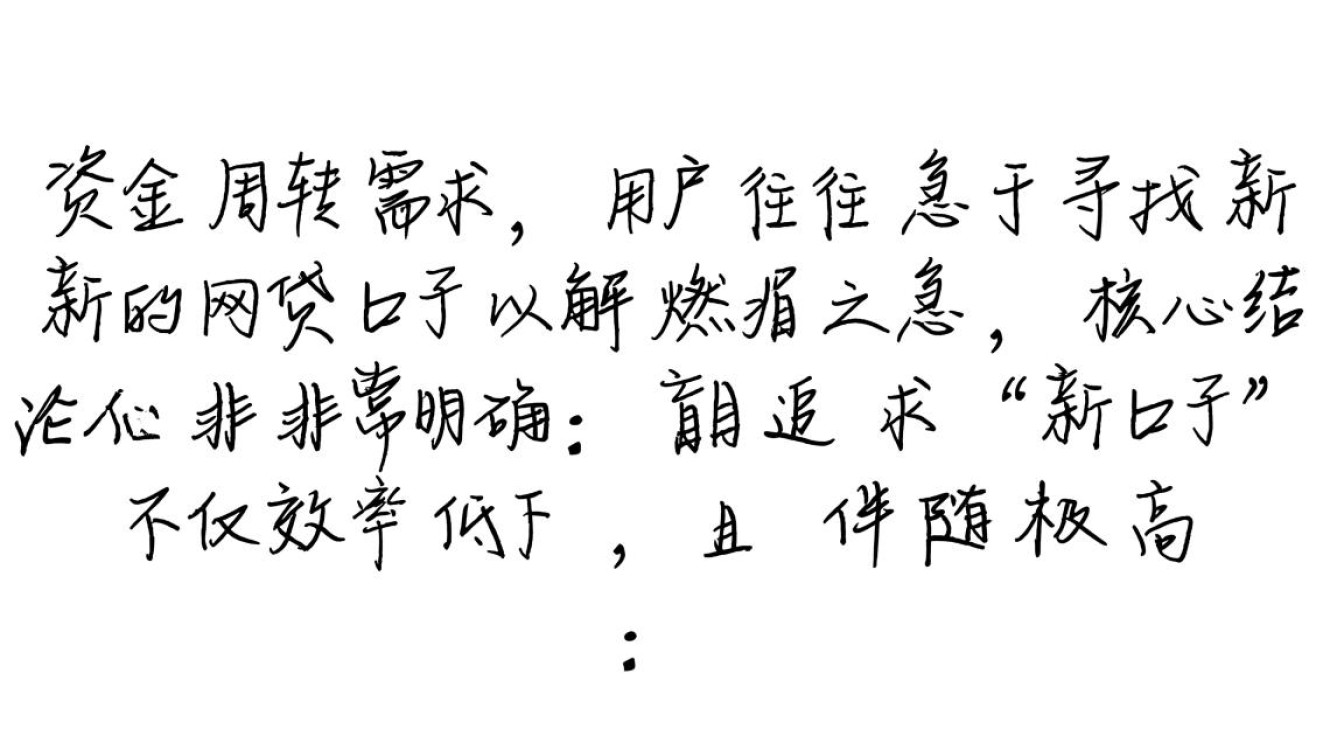 资金周转需求，用户往往急于寻找新
新的网贷口子以解燃眉之急，核心结
论似非非常明确：盲目追求“新口子”
不仅效率低下，且伴随极高
：